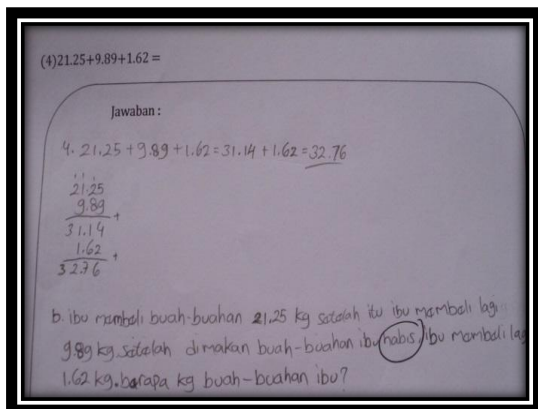 (4)21.25+9.89+1.62 =
Jawaban :
4. 21.25 + 9.89 + 1.62 = 31.14 + 1.62 = 32.76
21.25
9.89 +
31.14
1.62 +
32.76
b. ibu membeli buah-buahan 21.25 kg setelah itu ibu membeli lagi
9.89 kg.setelah dimakan buah-buahan ibu habis, ibu membeli lag
1.62 kg.berapa kg buah-buahan ibu?